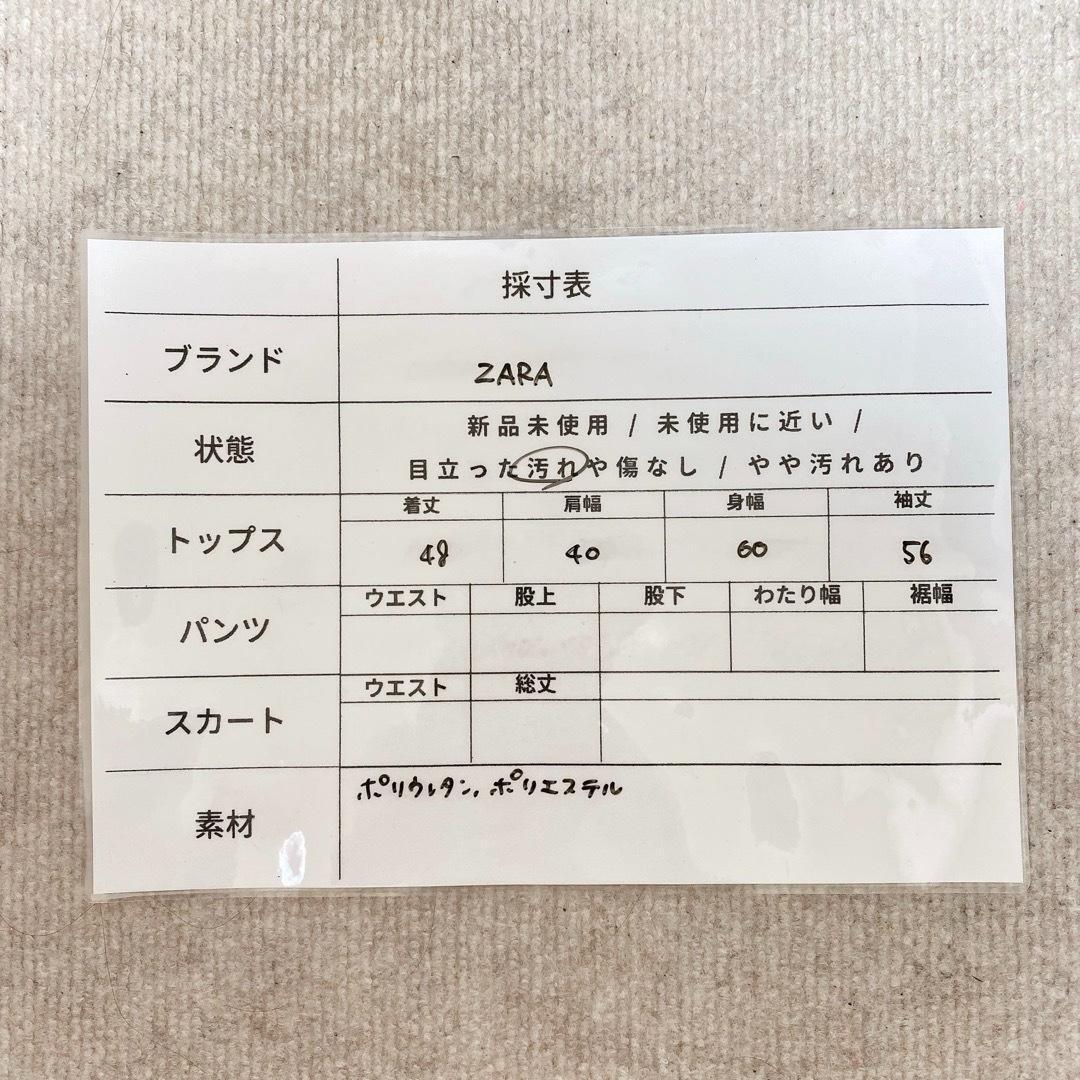 採寸表
ブランド
ZARA
状態
新品未使用 / 未使用に近い /
目立った汚れや傷なし / やや汚れあり
トップス
着丈 肩幅 身幅 袖丈
48 40 60 56
パンツ
ウエスト 股上 股下 わたり幅 裾幅
スカート
ウエスト 総丈
素材
ポリウレタン, ポリエステル